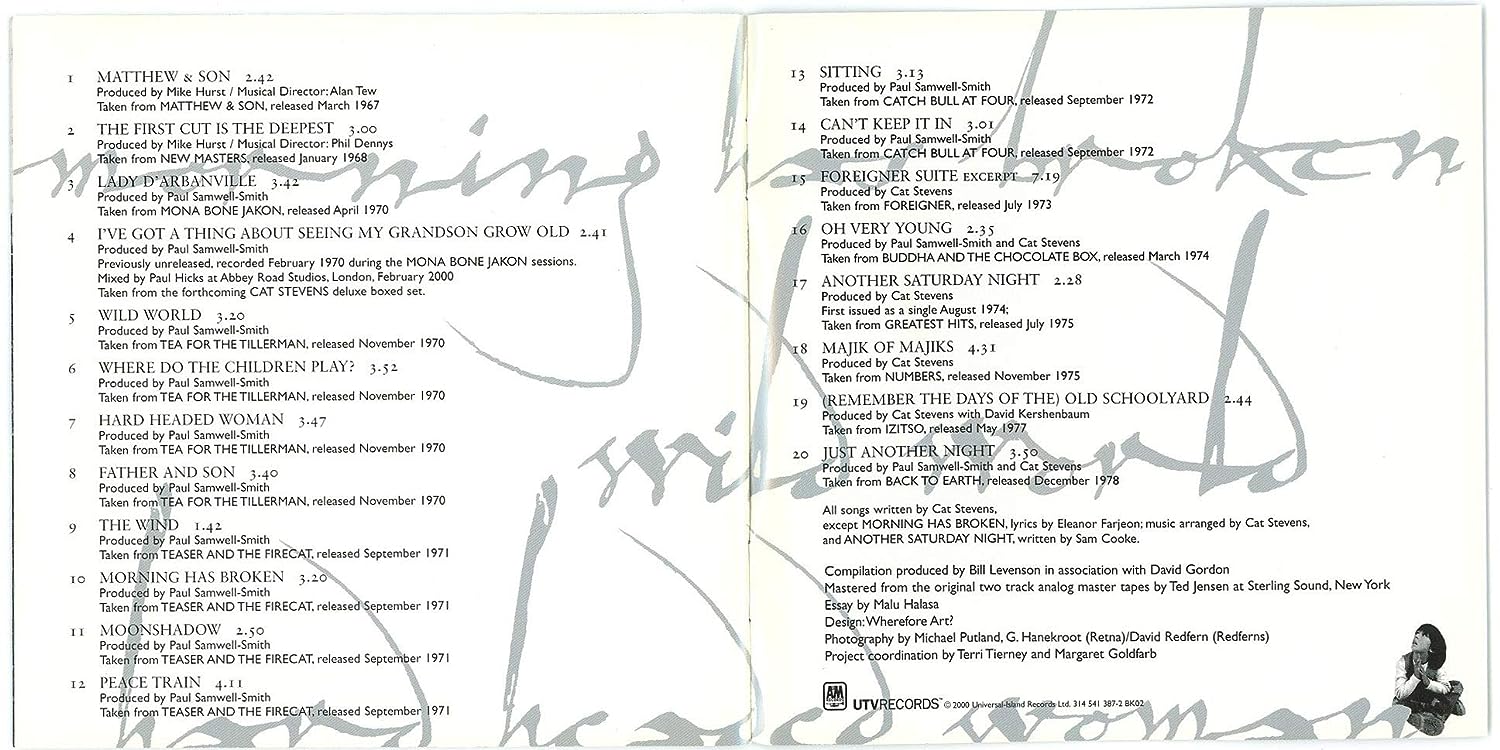 1 MATTHEW & SON 2.42
Produced by Mike Hurst / Musical Director: Alan Tew
Taken from MATTHEW & SON, released March 1967
2 THE FIRST CUT IS THE DEEPEST 3.00
Produced by Mike Hurst / Musical Director: Phil Dennys
Taken from NEW MASTERS, released January 1968
3 LADY D'ARBANVILLE 3.42
Produced by Paul Samwell-Smith
Taken from MONA BONE JAKON, released April 1970
4 I'VE GOT A THING ABOUT SEEING MY GRANDSON GROW OLD 2.41
Produced by Paul Samwell-Smith
Previously unreleased, recorded February 1970 during the MONA BONE JAKON sessions.
Mixed by Paul Hicks at Abbey Road Studios, London, February 2000
Taken from the forthcoming CAT STEVENS deluxe boxed set.
5 WILD WORLD 3.20
Produced by Paul Samwell-Smith
Taken from TEA FOR THE TILLERMAN, released November 1970
6 WHERE DO THE CHILDREN PLAY? 3.52
Produced by Paul Samwell-Smith
Taken from TEA FOR THE TILLERMAN, released November 1970
7 HARD HEADED WOMAN 3.47
Produced by Paul Samwell-Smith
Taken from TEA FOR THE TILLERMAN, released November 1970
8 FATHER AND SON 3.40
Produced by Paul Samwell-Smith
Taken from TEA FOR THE TILLERMAN, released November 1970
9 THE WIND 1.42
Produced by Paul Samwell-Smith
Taken from TEASER AND THE FIRECAT, released September 1971
10 MORNING HAS BROKEN 3.20
Produced by Paul Samwell-Smith
Taken from TEASER AND THE FIRECAT, released September 1971
11 MOONSHADOW 2.50
Produced by Paul Samwell-Smith
Taken from TEASER AND THE FIRECAT, released September 1971
12 PEACE TRAIN 4.11
Produced by Paul Samwell-Smith
Taken from TEASER AND THE FIRECAT, released September 1971
13 SITTING 3.13
Produced by Paul Samwell-Smith
Taken from CATCH BULL AT FOUR, released September 1972
14 CAN'T KEEP IT IN 3.01
Produced by Paul Samwell-Smith
Taken from CATCH BULL AT FOUR, released September 1972
15 FOREIGNER SUITE EXCERPT 7.19
Produced by Cat Stevens
Taken from FOREIGNER, released July 1973
16 OH VERY YOUNG 2.35
Produced by Paul Samwell-Smith and Cat Stevens
Taken from BUDDHA AND THE CHOCOLATE BOX, released March 1974
17 ANOTHER SATURDAY NIGHT 2.28
Produced by Cat Stevens
First issued as a single August 1974;
Taken from GREATEST HITS, released July 1975
18 MAJIK OF MAJIKS 4.31
Produced by Cat Stevens
Taken from NUMBERS, released November 1975
19 (REMEMBER THE DAYS OF THE) OLD SCHOOLYARD 2.44
Produced by Cat Stevens with David Kershenbaum
Taken from IZITSO, released May 1977
20 JUST ANOTHER NIGHT 3.50
Produced by Paul Samwell-Smith and Cat Stevens
Taken from BACK TO EARTH, released December 1978
All songs written by Cat Stevens,
except MORNING HAS BROKEN, lyrics by Eleanor Farjeon; music arranged by Cat Stevens,
and ANOTHER SATURDAY NIGHT, written by Sam Cooke.
Compilation produced by Bill Levenson in association with David Gordon
Mastered from the original two track analog master tapes by Ted Jensen at Sterling Sound, New York
Essay by Malu Halasa
Design: Wherefore Art?
Photography by Michael Putland, G. Hanekroot (Retna)/David Redfern (Redferns)
Project coordination by Terri Tierney and Margaret Goldfarb
A&M RECORDS UTVRECORDS™ © 2000 Universal-Island Records Ltd. 314 541 387-2 BK02
morning has broken
wild world
hard headed woman